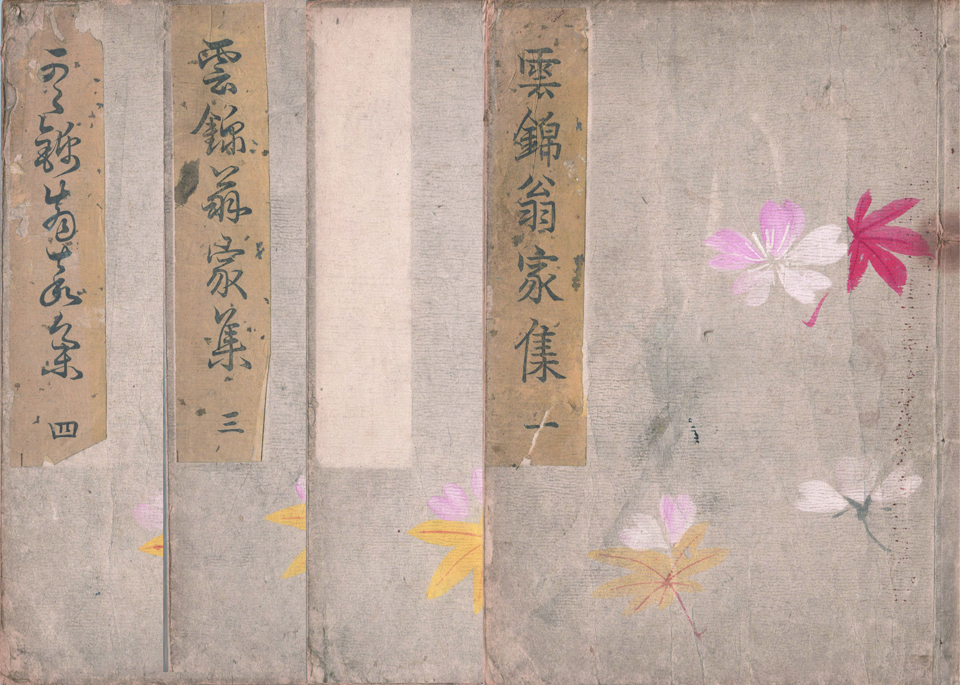 雲錦翁家集 一
雲錦翁家集 三
雲錦翁家集 四